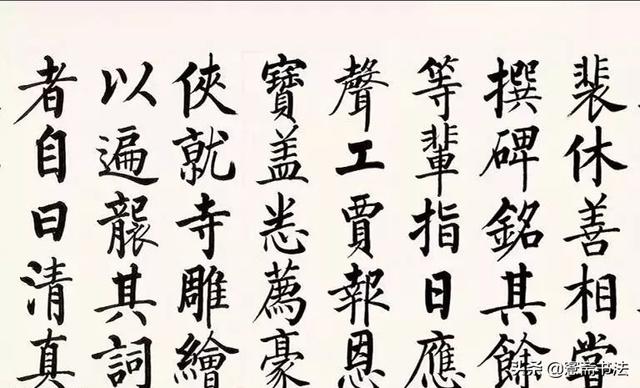 裴休善相堂
撰碑銘其餘
等輩指日應
聲工賈報恩
寶盖悉薦豪
俠就寺雕繪
以遍襲其詞
者自曰清真
头条 @寔斋书法